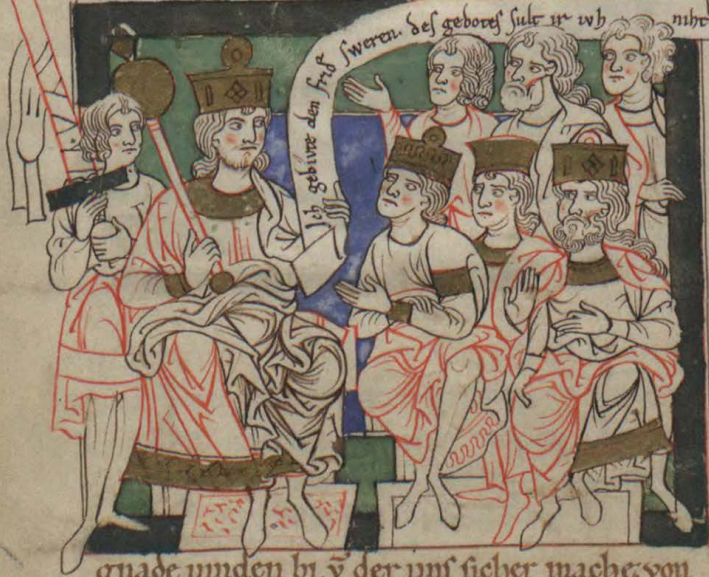 Ich gebivte den frid sweren. des gebotes sult ir vh niht
gnade uinden bi v̄ der uns sicher mache. von